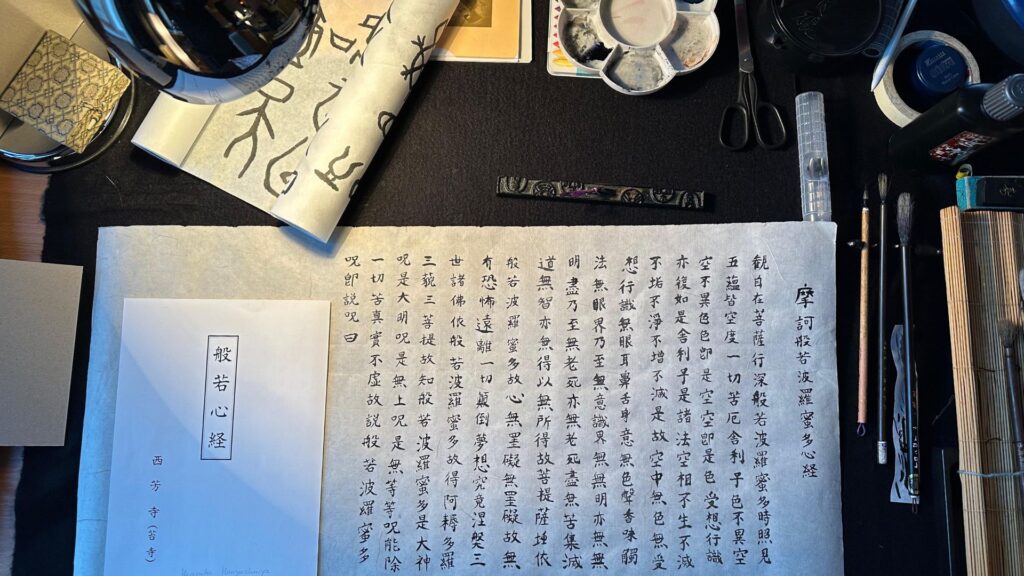 摩訶般若波羅蜜多心経
觀自在菩薩行深般若波羅蜜多時照見
五蘊皆空度一切苦厄舍利子色不異空
空不異色色即是空空即是色受想行識
亦復如是舍利子是諸法空相不生不滅
不垢不淨不增不減是故空中無色無受
想行識無眼耳鼻舌身意無色聲香味觸
法無眼界乃至無意識界無無明亦無無
明盡乃至無老死亦無老死盡無苦集滅
道無智亦無得以無所得故菩提薩埵依
般若波羅蜜多故心無罣礙無罣礙故無
有恐怖遠離一切顛倒夢想究竟涅槃三
世諸佛依般若波羅蜜多故得阿耨多羅
三藐三菩提故知般若波羅蜜多是大神
呪是大明呪是無上呪是無等等呪能除
一切苦真實不虛故説般若波羅蜜多
呪即説呪曰
般若心経
西芳寺(苔寺)